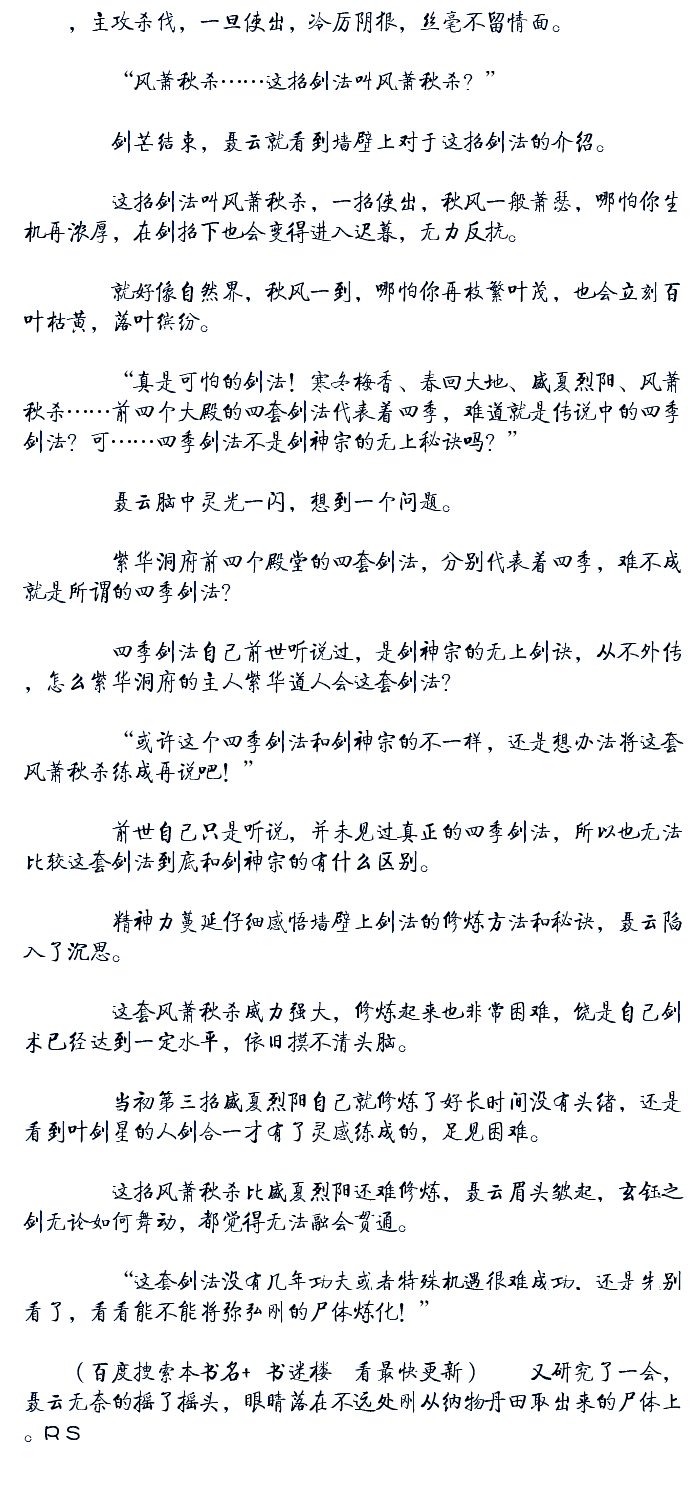 ，主攻杀伐，一旦使出，冷厉阴狠，丝毫不留情面。
“风萧秋杀……这招剑法叫风萧秋杀？”
剑芒结束，聂云就看到墙壁上对于这招剑法的介绍。
这招剑法叫风萧秋杀，一招使出，秋风一般萧瑟，哪怕你生
机再浓厚，在剑招下也会变得进入迟暮，无力反抗。
就好像自然界，秋风一到，哪怕你再枝繁叶茂，也会立刻百
叶枯黄，落叶缤纷。
“真是可怕的剑法！寒冬梅香、春回大地、盛夏烈阳、风萧
秋杀……前四个大殿的四套剑法代表着四季，难道就是传说中的四季
剑法？可……四季剑法不是剑神宗的无上秘诀吗？”
聂云脑中灵光一闪，想到一个问题。
紫华洞府前四个殿堂的四套剑法，分别代表着四季，难不成
就是所谓的四季剑法？
四季剑法自己前世听说过，是剑神宗的无上剑诀，从不外传
，怎么紫华洞府的主人紫华道人会这套剑法？
“或许这个四季剑法和剑神宗的不一样，还是想办法将这套
风萧秋杀练成再说吧！”
前世自己只是听说，并未见过真正的四季剑法，所以也无法
比较这套剑法到底和剑神宗的有什么区别。
精神力蔓延仔细感悟墙壁上剑法的修炼方法和秘诀，聂云陷
入了沉思。
这套风萧秋杀威力强大，修炼起来也非常困难，饶是自己剑
术已经达到一定水平，依旧摸不清头脑。
当初第三招盛夏烈阳自己就修炼了好长时间没有头绪，还是
看到叶剑星的人剑合一才有了灵感练成的，足见困难。
这招风萧秋杀比盛夏烈阳还难修炼，聂云眉头皱起，玄钰之
剑无论如何舞动，都觉得无法融会贯通。
“这套剑法没有几年功夫或者特殊机遇很难成功．还是先别
看了，看看能不能将弥弘刚的尸体炼化！”
（百度搜索本书名+ 书迷楼 看最快更新） 又研究了一会，
聂云无奈的摇了摇头，眼睛落在不远处刚从纳物丹田取出来的尸体上
。RS